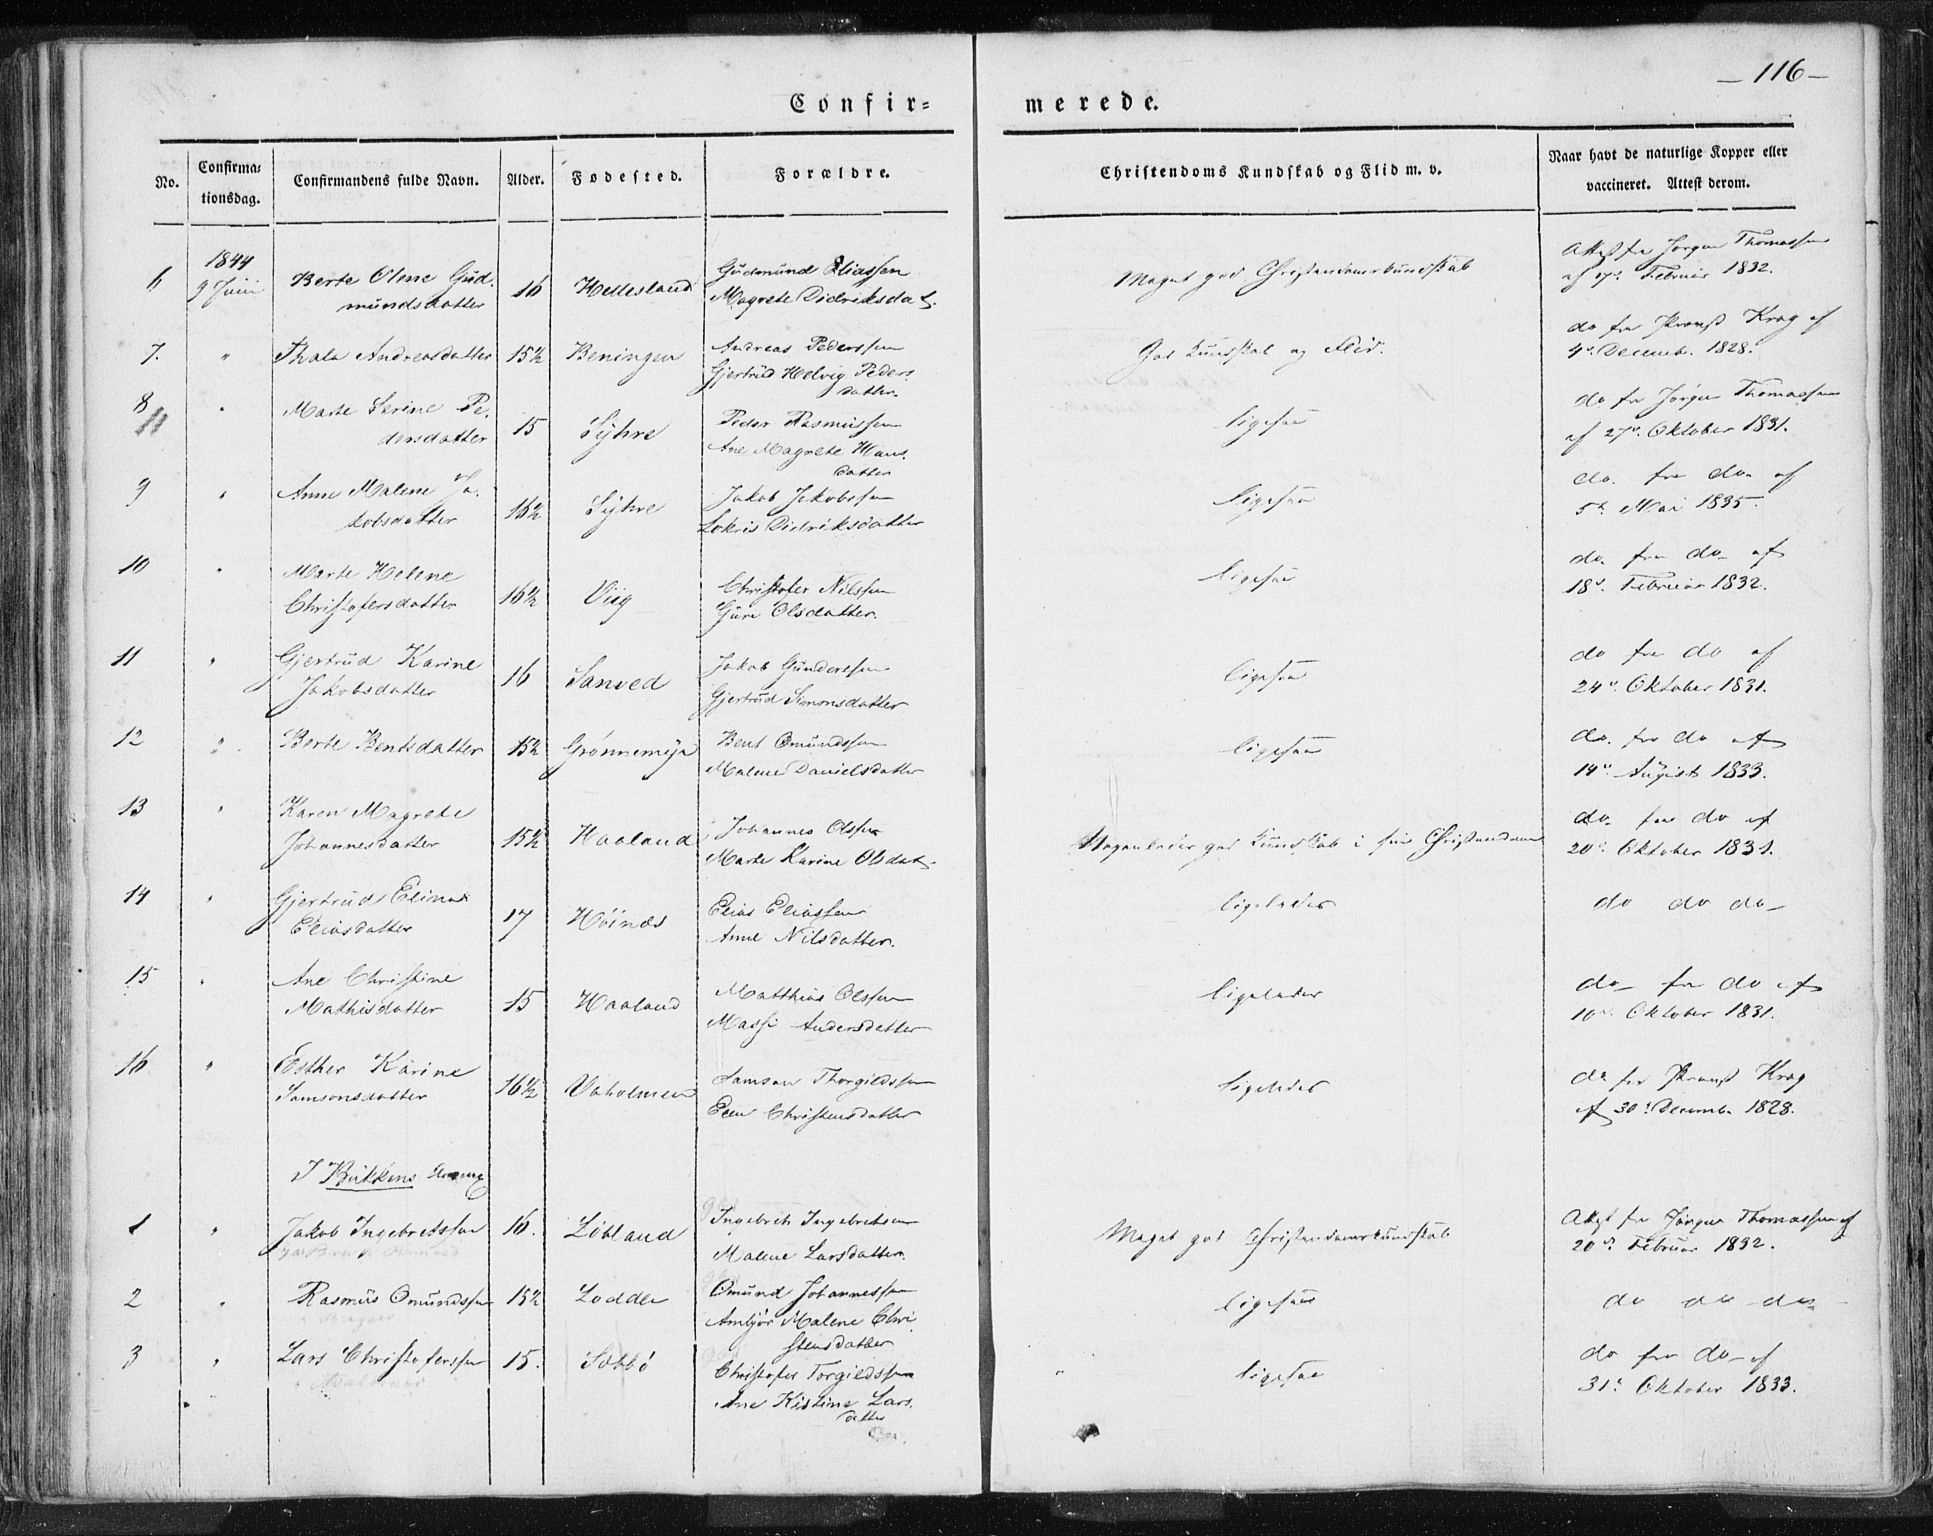 — 116 —
Confir= merede.
No.
Confirma=
tionsdag.
Confirmandens fulde Navn.
Alder.
Fødested.
Forældre.
Christendoms Kundskab og Flid m. v.
Naar havt de naturlige Kopper eller
vaccineret. Attest derom.
1844
6 9 Juni Berte Oline Gud-
mundsdatter 16 Hellesland Gudmund Eliassen
Magrete Didriksdat. Meget god Christendomskundskab Attest fra Jørgen Thomassen
af 7de Februar 1832.
7. " Thala Andreasdatter 15½ Beningen Andreas Pederssen
Gjertrud Helvig Peders-
datter. God Kundskab og Flid. do fra Provst Krog af
4de Decemb. 1828.
8 " Marte Serine Pe-
dersdatter 15 Syhre Peder Rasmussen
Ane Magrete Hans-
datter ligesaa do fra Jørgen Thomassen
af 27de Oktober 1831.
11
9 " Anne Malene Ja-
kobsdatter 16½ Syhre Jakob Jakobssen
Lokris Didriksdatter ligesaa do. fra do. af
5te Mai 1835.
10 " Marte Helene
Christofersdatter 16½ Viig Christofer Nilssen
Guri Olsdatter. ligesaa do. fra do. af
18de Februar 1832.
11 " Gjertrud Karine
Jakobsdatter 16 Sanved Jakob Gunderssen
Gjertrud Simonsdatter ligesaa do fra do af
24de Oktober 1831.
12 " Berte Bentsdatter 15½ Grønnemyr Bent Omundssen
Malene Danielsdatter ligesaa do. fra do af
14de August 1833.
13 " Karen Magrete
Johannesdatter 15½ Haaland Johannes Olssen
Marte Karine Olsdat. Nogenleder god Kundskab i sin Christendom do. fra do af
20de Oktober 1831.
14 " Gjertrud Elina
Eliasdatter 17 Høinæs Elias Eliassen
Anne Nilsdatter. ligeleder do do do
15 " Ane Christine
Mathisdatter 15 Haaland Matthias Olssen
Massi Andersdatter ligeleder do fra do af
10de Oktober 1831.
16 " Esther Karine
Samsonsdatter 16½ Vaholmen Samson Thorgildssen
Elen Christensdatter ligeleder do fra Provst Krog
af 30te Decemb. 1828.
I Bukkens
1 " Jakob Ingebretssen 16. Løbland Ingebret Ingebretsen
Malene Larsdatter. Meget god Christendomskundskab Attest fra Jørgen Thomassen af
20de Februar 1832.
2 " Rasmus Omundssen 15½ Lodden Omund Johannessen
Amljør Malene Chri-
stensdatter ligesaa do do do
3 " Lars Christoferssen 15. Søbbø Christofer Torgildssen
Ane Kistine Lars-
datter " ligesaa do fra do af
31te Oktober 1833.